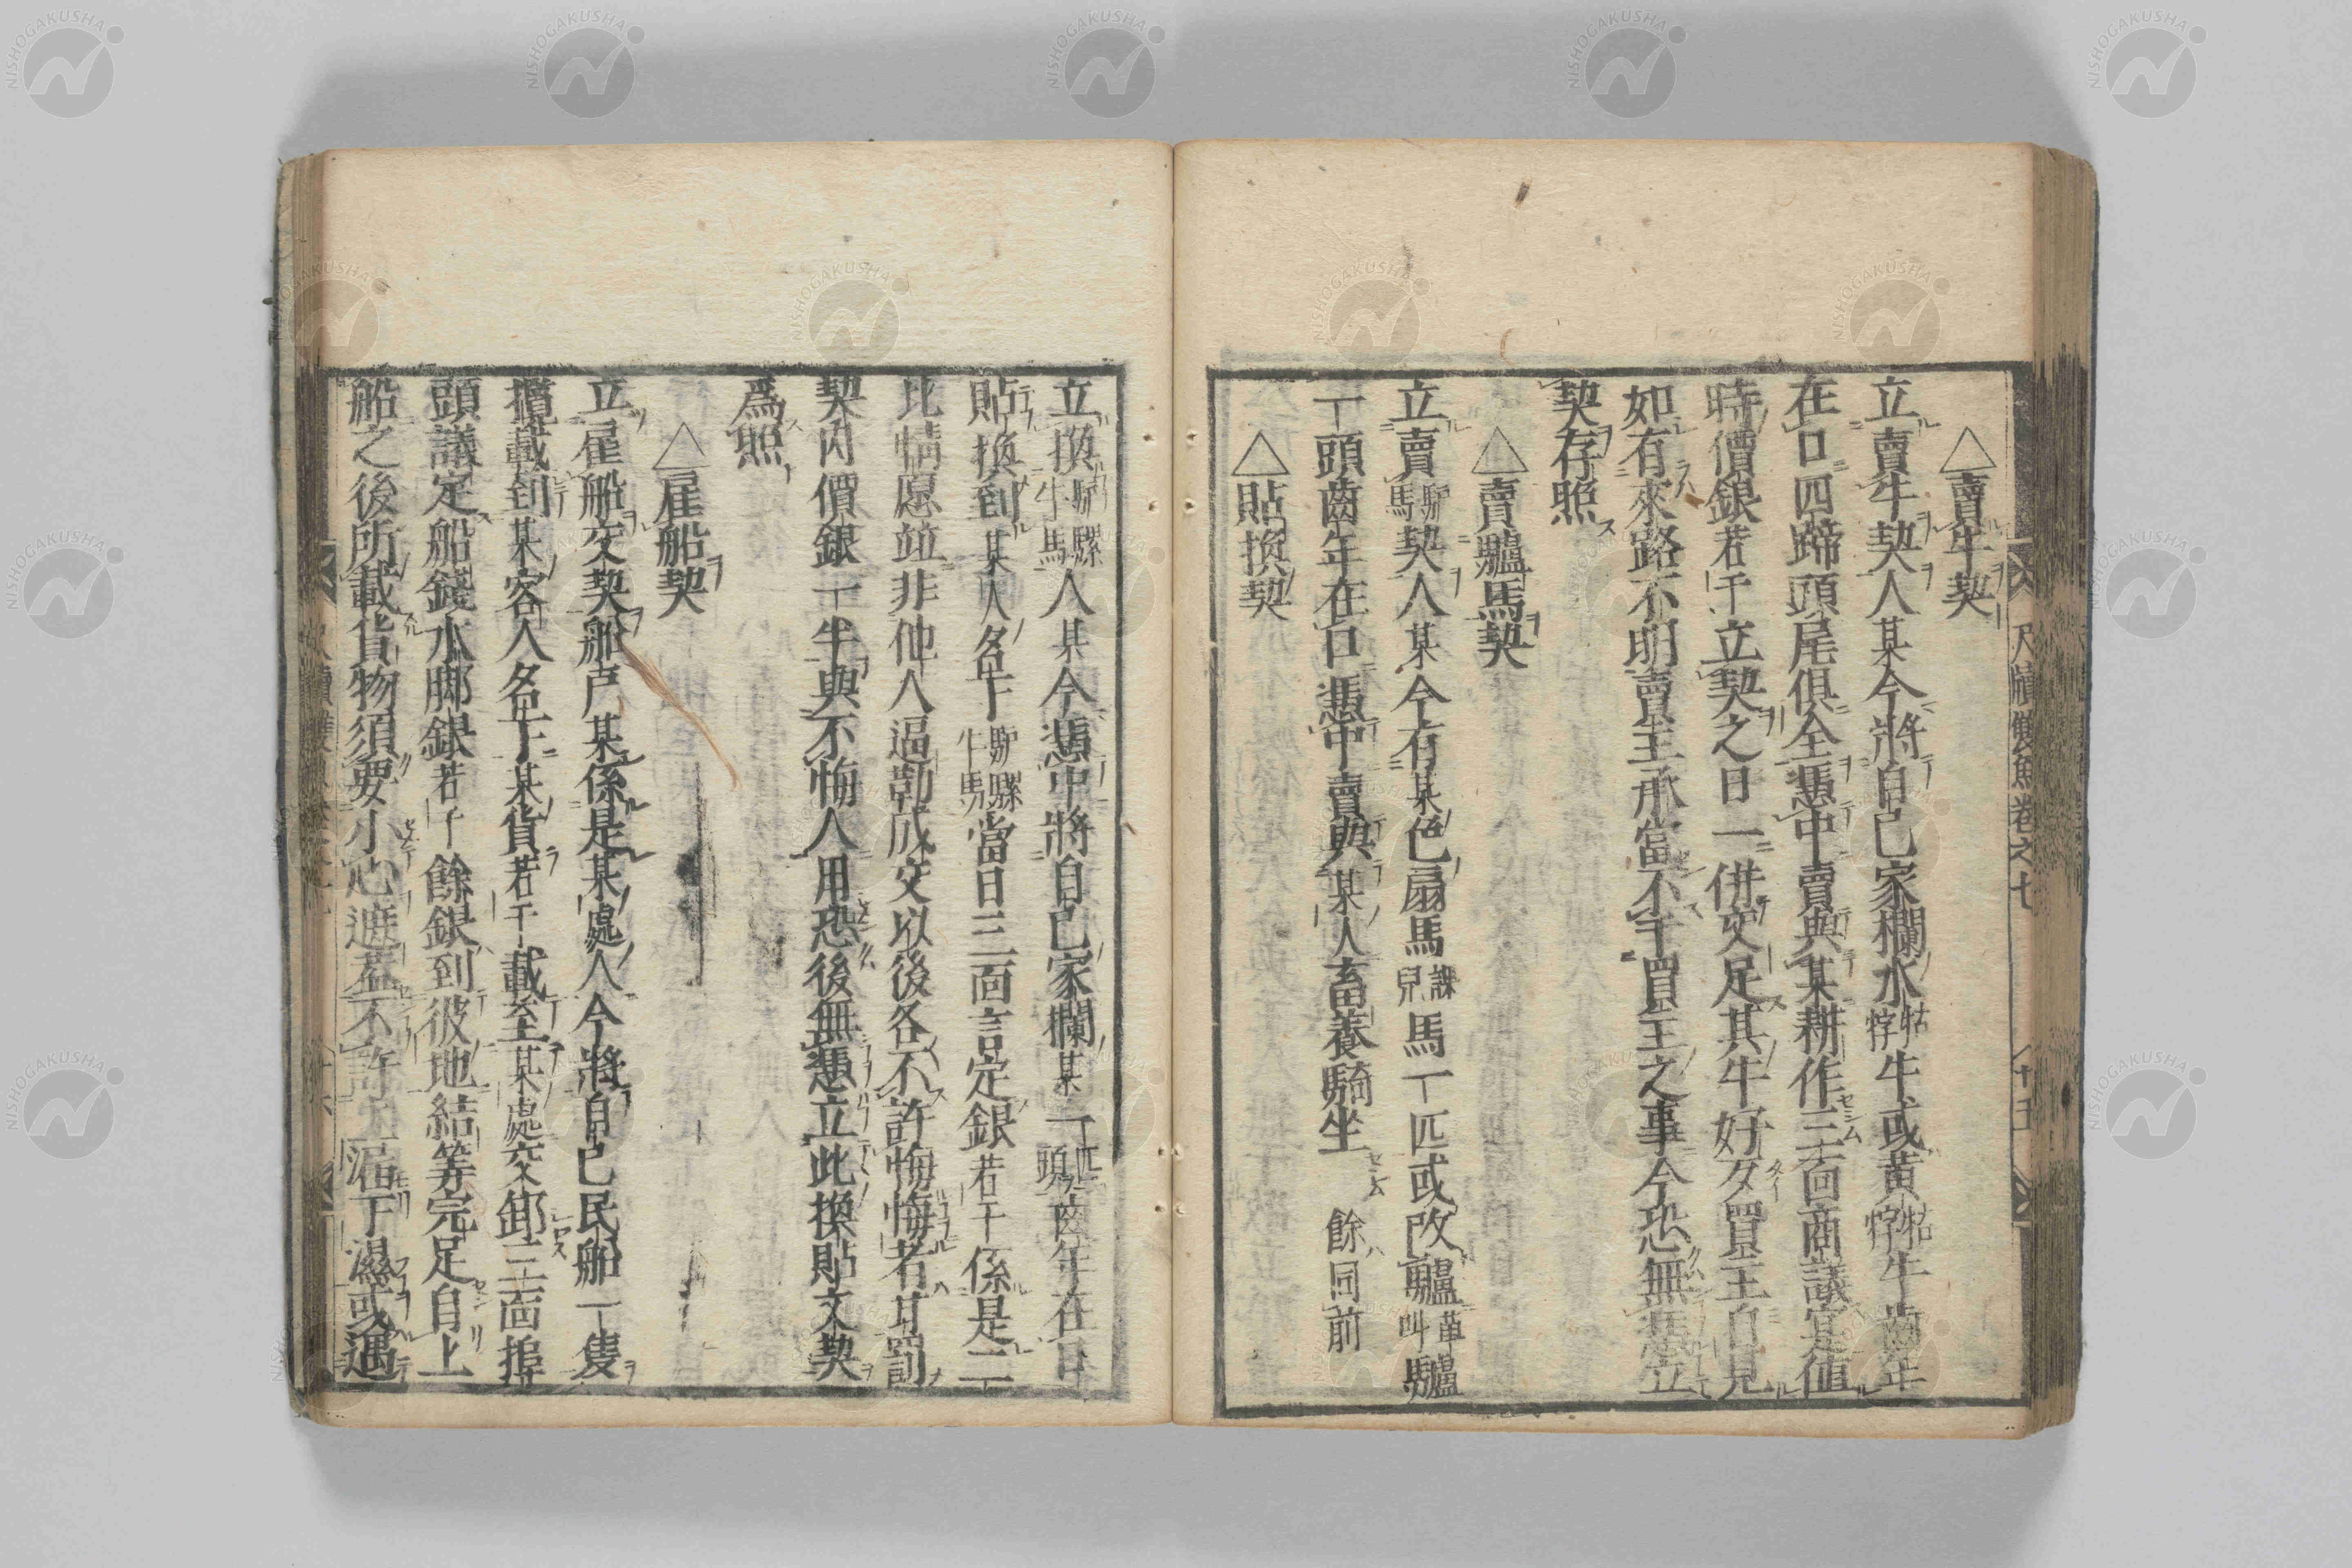 △賣牛契
立賣牛契人某今將自己家欄水牯牸牛或黄牯牸牛齒年
在口四蹄頭尾俱全憑中賣與某耕作三面商議定値
時價銀若干立契之日一併交足其牛好歹買主自見
如有來路不明賣主承當不干買主之事今恐無憑立
契存照
△賣驢馬契
立賣馿馬契人某今有某色扇馬課兒馬一匹或改驢草叫驢
一頭齒年在口憑中賣與某人畜養騎坐 餘同前
△貼換契
尺牘雙魚卷之七 十五
立換馿騾牛馬人某今憑中將自己家欄某一匹頭齒年在口
貼換到某人名下馿騾牛馬當日三面言定銀若干係是二
比情愿並非他人逼勒成交以後各不許悔悔者甘罰
契内價銀一半與不悔人用恐後無憑立此換貼文契
爲照
△雇船契
立雇船交契船戸某係是某處人今將自己民船一隻
攬載到某客人名下某貨若干載至某處交卸三面
頭議定船錢水脚銀若干餘銀到彼地結筭完足自上
船之後所載貨物須要小心遮蓋不許 濕或遇
NISHOGAKUSHA